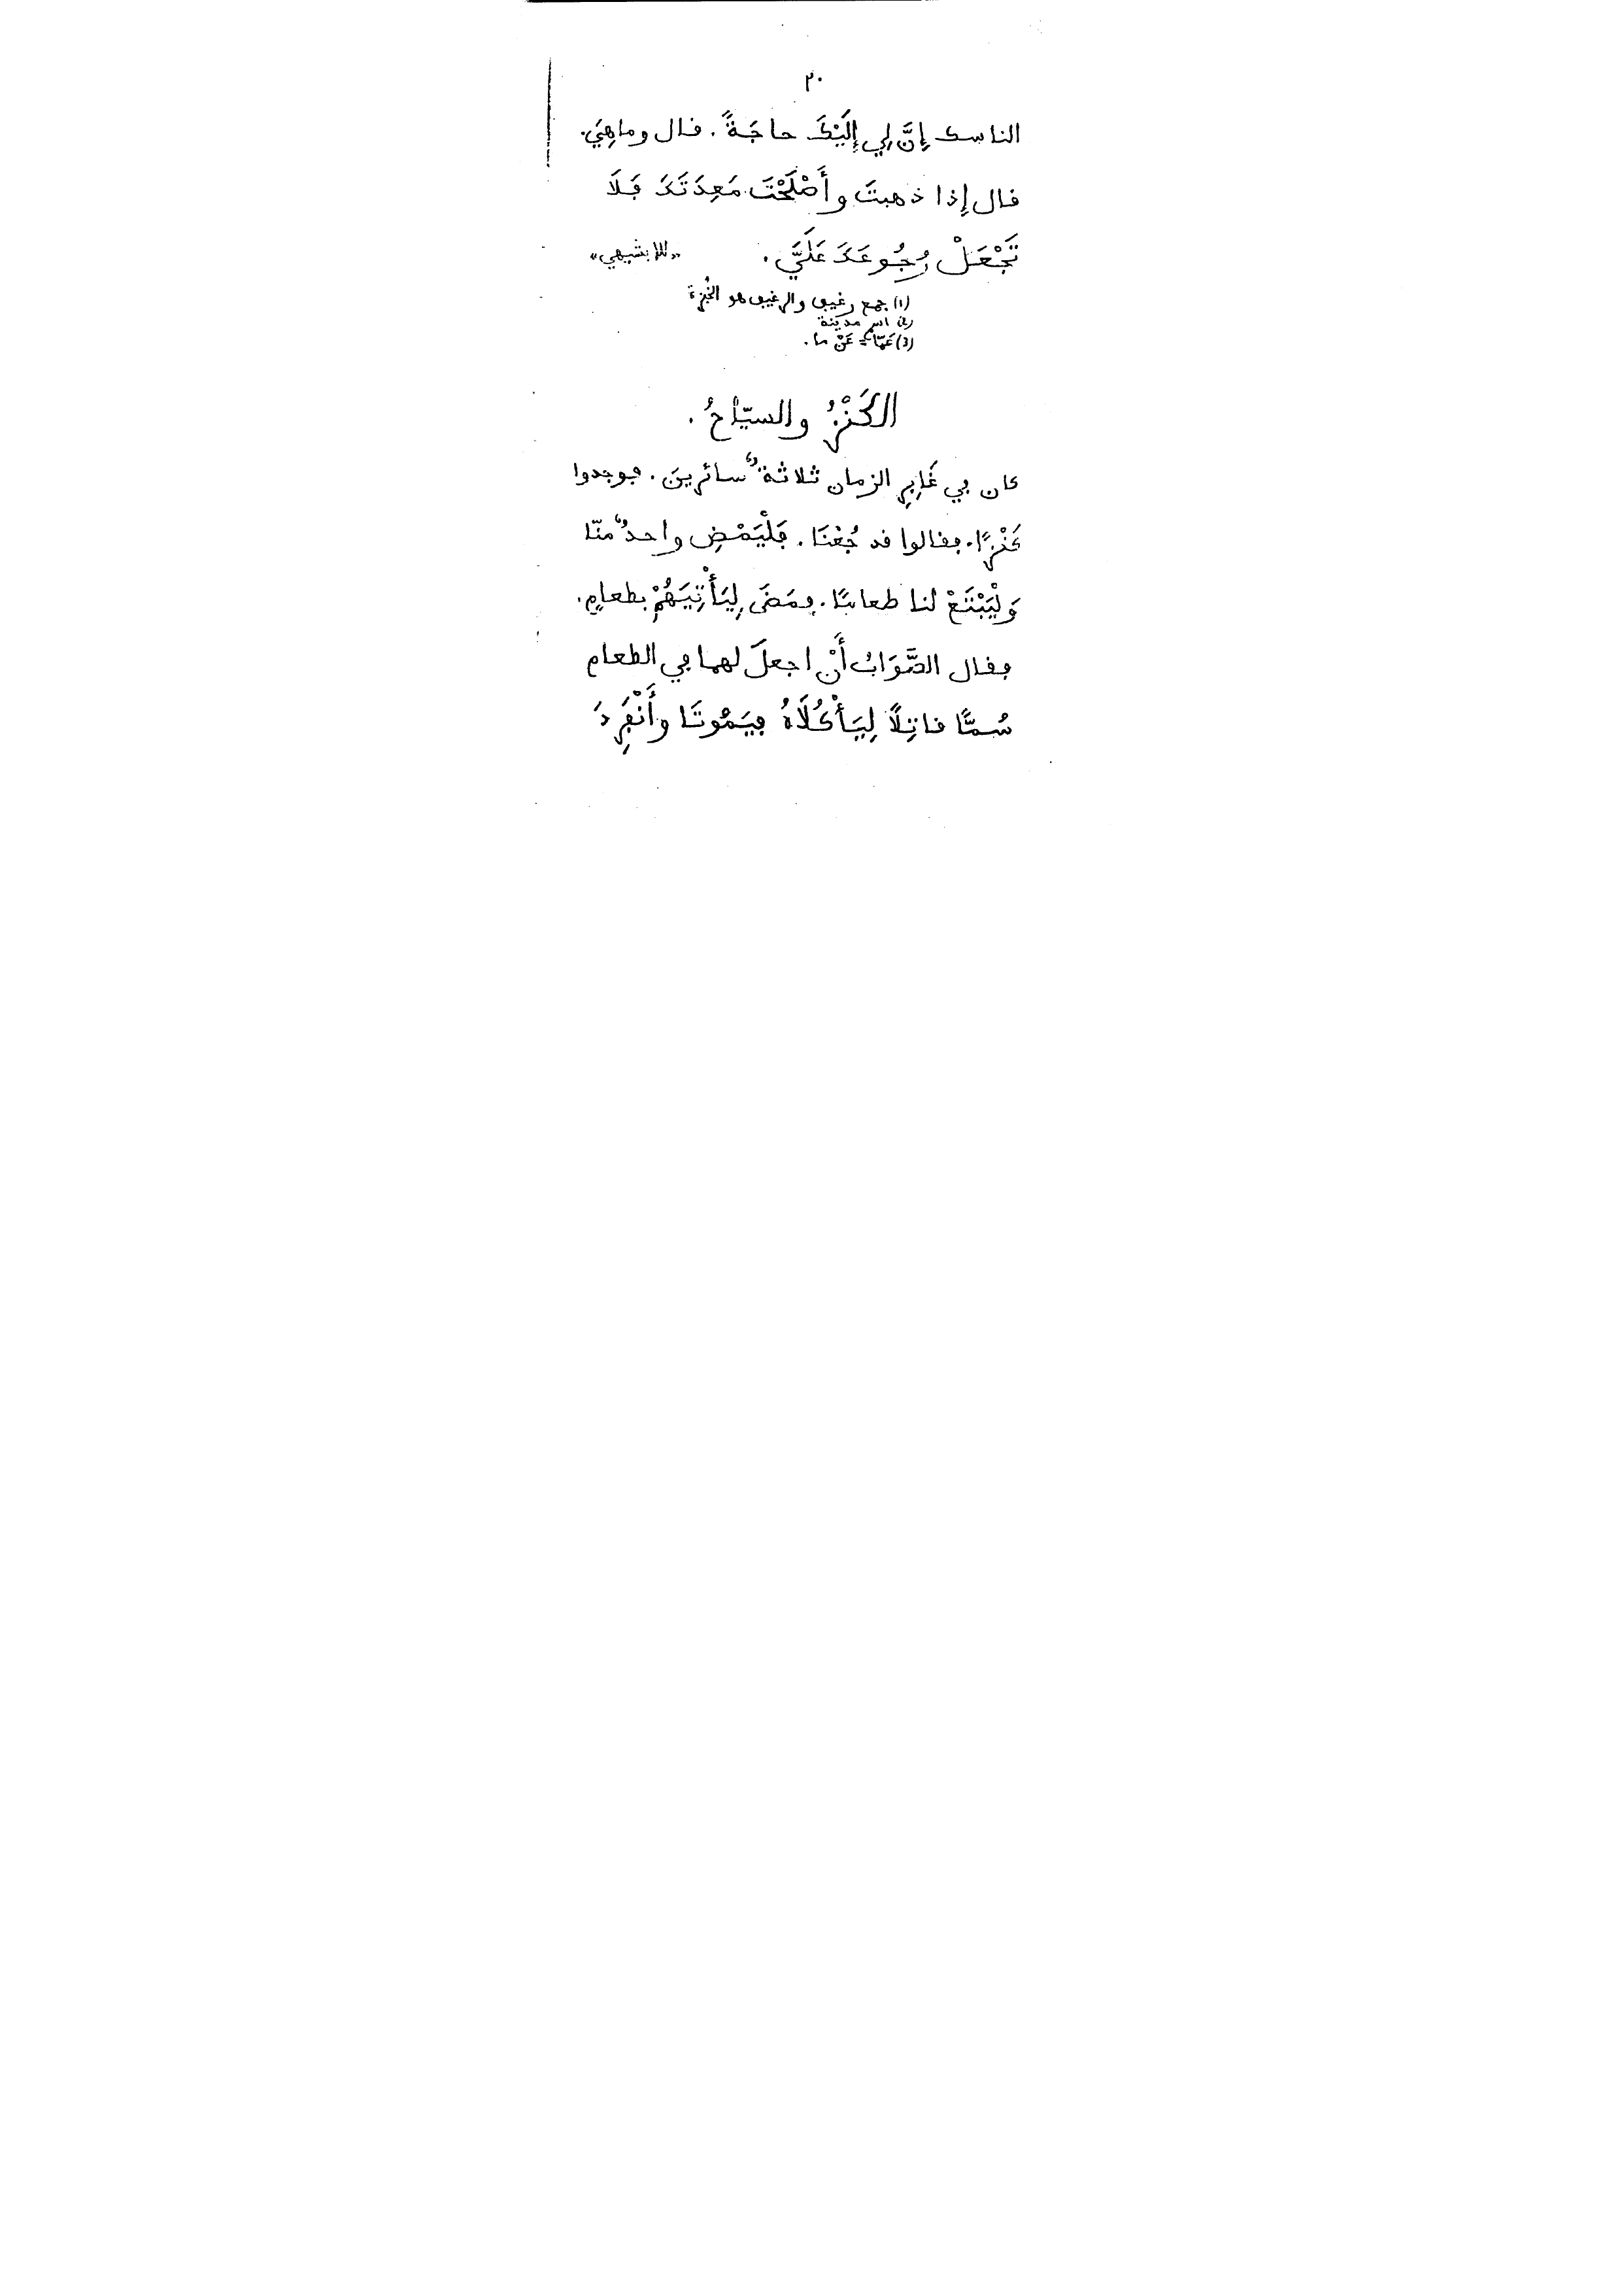 ٢٠
الناسك إِنَّ لِي إِلَيْكَ حاجَةً. قال وما هِيَ.
قال إِذا ذهبتَ وأَصْلَحْتَ مَعِدَتَكَ فَلَا
تَجْعَلْ رُجُوعَكَ عَلَيَّ. «للإبشيهي»
(1) جمع رغيف والرغيف هو الخُبْزة
(2) اسم مدينة
(3) عَمّا = عَنْ ما.
الكَنْزُ والسيّاحُ.
كان في غَابِرِ الزمان ثلاثةٌ سائرينَ. فوجدوا
كَنْزًا. فقالوا قد جُعْنَا. فَلْيَمْضِ واحدٌ منّا
وَلْيَبْتَعْ لنا طعامًا. فمَضَى لِيَأْتِيَهُمْ بطعامٍ.
فقال الصَّوَابُ أَنْ اجعلَ لهما في الطعام
سُمًّا قاتِلًا لِيَأْكُلَاهُ فيَمُوتَا وأَنْفَرِدَ